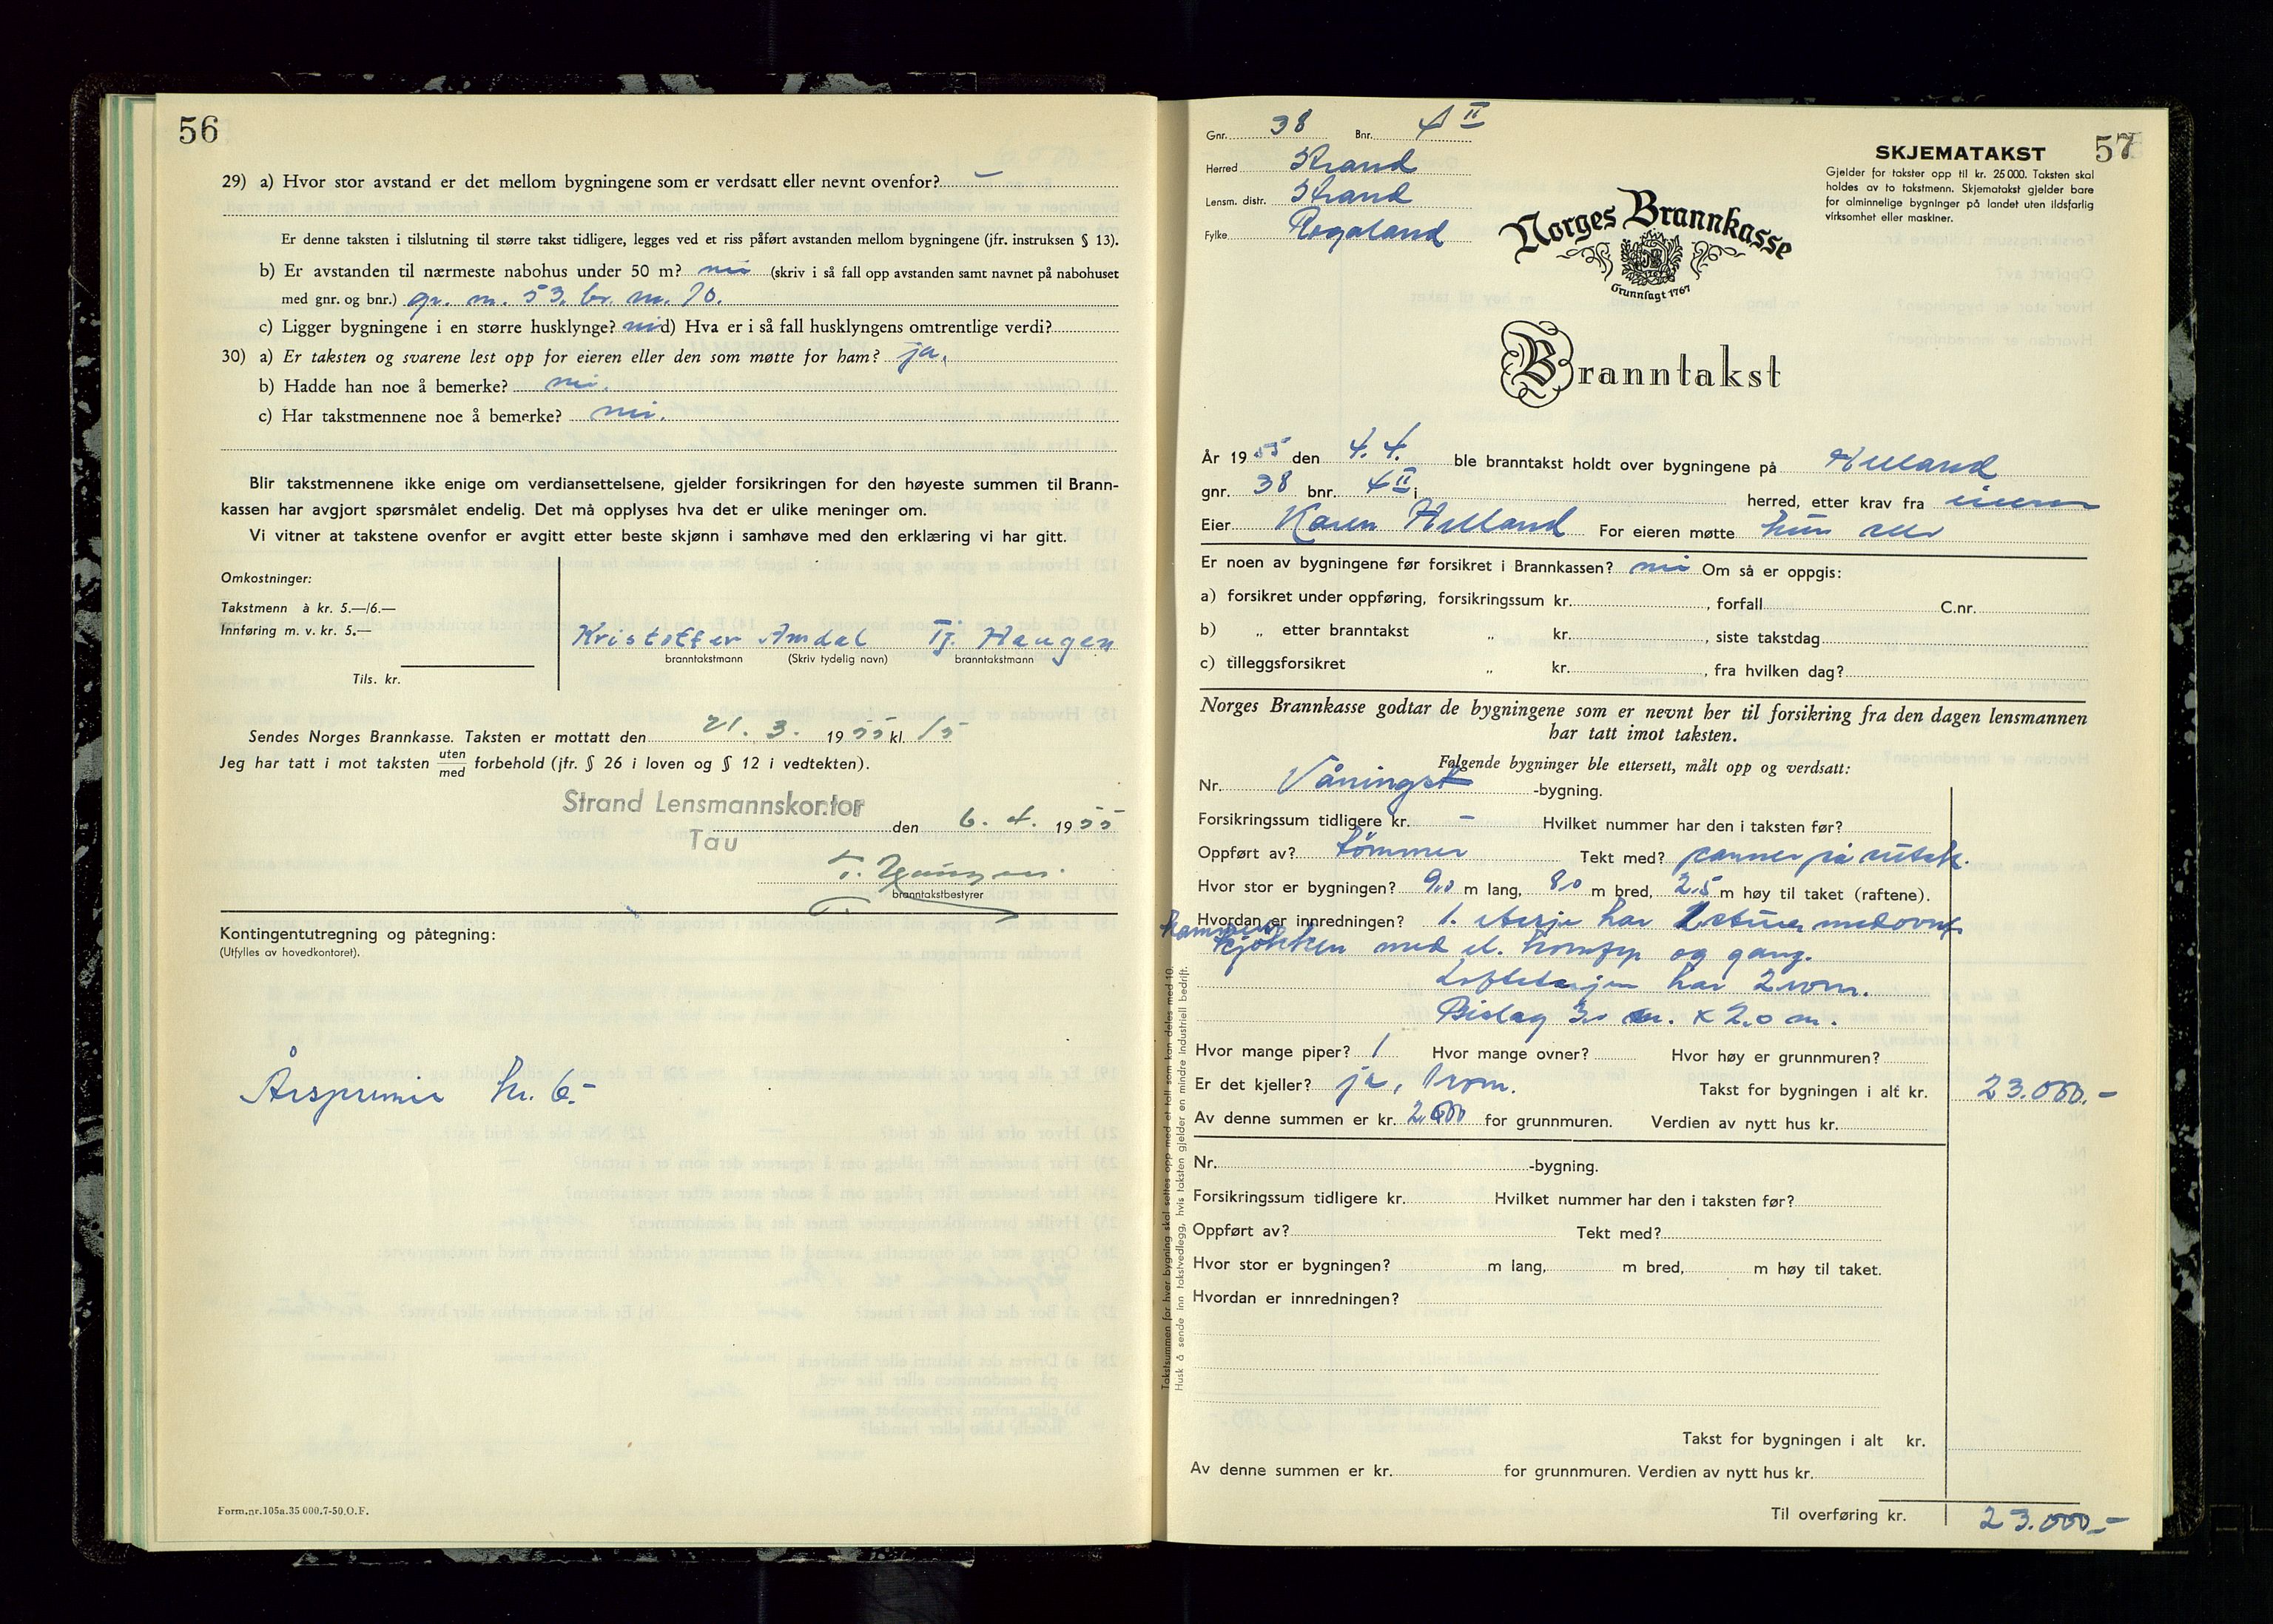 56
29) a) Hvor stor avstand er det mellom bygningene som er verdsatt eller nevnt ovenfor? –
Er denne taksten i tilslutning til større takst tidligere, legges ved et riss påført avstanden mellom bygningene (jfr. instruksen § 13).
b) Er avstanden til nærmeste nabohus under 50 m? nei (skriv i så fall opp avstanden samt navnet på nabohuset
med gnr. og bnr.) gr. nr. 53. br. nr. 70.
c) Ligger bygningene i en større husklynge? nei d) Hva er i så fall husklyngens omtrentlige verdi?
30) a) Er taksten og svarene lest opp for eieren eller den som møtte for ham? ja.
b) Hadde han noe å bemerke? nei.
c) Har takstmennene noe å bemerke? nei.
Blir takstmennene ikke enige om verdiansettelsene, gjelder forsikringen for den høyeste summen til Brann-
kassen har avgjort spørsmålet endelig. Det må opplyses hva det er ulike meninger om.
Vi vitner at takstene ovenfor er avgitt etter beste skjønn i samhøve med den erklæring vi har gitt.
Omkostninger:
Takstmenn à kr. 5.—/6.—
Innføring m. v. kr. 5.—
Tils. kr.
Kristoffer Amdal Tj. Haugen
branntakstmann (Skriv tydelig navn) branntakstmann
Sendes Norges Brannkasse. Taksten er mottatt den 21. 3. 1955 kl. 15
Jeg har tatt i mot taksten uten/med forbehold (jfr. § 26 i loven og § 12 i vedtekten).
Strand Lensmannskontor
Tau
den 6. 4. 1955
branntakstbestyrer
Kontingentutregning og påtegning:
(Utfylles av hovedkontoret).
Årspremie kr. 6.-
Form.nr.105a.35 000.7-50.O.F.
57
Gnr. 38 Bnr. 4 II
Herred Strand
Lensm. distr. Strand
Fylke Rogaland
SKJEMATAKST
Gjelder for takster opp til kr. 25 000. Taksten skal
holdes av to takstmenn. Skjematakst gjelder bare
for alminnelige bygninger på landet uten ildsfarlig
virksomhet eller maskiner.
Norges Brannkasse
Grunnlagt 1767
Branntakst
År 1955 den 4. 4. ble branntakst holdt over bygningene på Helland
gnr. 38 bnr. 4 II i herred, etter krav fra eieren
Eier Karen Helland For eieren møtte hun selv
Er noen av bygningene før forsikret i Brannkassen? nei Om så er oppgis:
a) forsikret under oppføring, forsikringssum kr. , forfall C.nr.
b) „ etter branntakst „ kr. , siste takstdag
c) tilleggsforsikret „ kr. , fra hvilken dag?
Norges Brannkasse godtar de bygningene som er nevnt her til forsikring fra den dagen lensmannen
har tatt imot taksten.
Følgende bygninger ble ettersett, målt opp og verdsatt:
Nr. Våningst -bygning.
Forsikringssum tidligere kr. – Hvilket nummer har den i taksten før?
Oppført av? tømmer Tekt med? panner på sutak.
Hvor stor er bygningen? 9.0 m lang, 8.0 m bred, 2.5 m høy til taket (raftene).
Hvordan er innredningen? 1. etasje har 2 stuer med ovn
kammers
kjøkken med el. komfyr og gang.
Loftetasjen har 2 rom.
Bislag 3.0 m. x 2.0 m.
Hvor mange piper? 1 Hvor mange ovner? Hvor høy er grunnmuren?
Er det kjeller? ja, 1 rom. Takst for bygningen i alt kr. 23.000.-
Av denne summen er kr. 2.000 for grunnmuren. Verdien av nytt hus kr.
Nr. -bygning.
Forsikringssum tidligere kr. Hvilket nummer har den i taksten før?
Oppført av? Tekt med?
Hvor stor er bygningen? m lang, m bred, m høy til taket.
Hvordan er innredningen?
Takst for bygningen i alt kr.
Av denne summen er kr. for grunnmuren. Verdien av nytt hus kr.
Til overføring kr. 23.000.-
Takstsummen for hver bygning skal settes opp med et tall som kan deles med 10.
Husk å sende inn takstvedlegg, hvis taksten gjelder en mindre industriell bedrift.